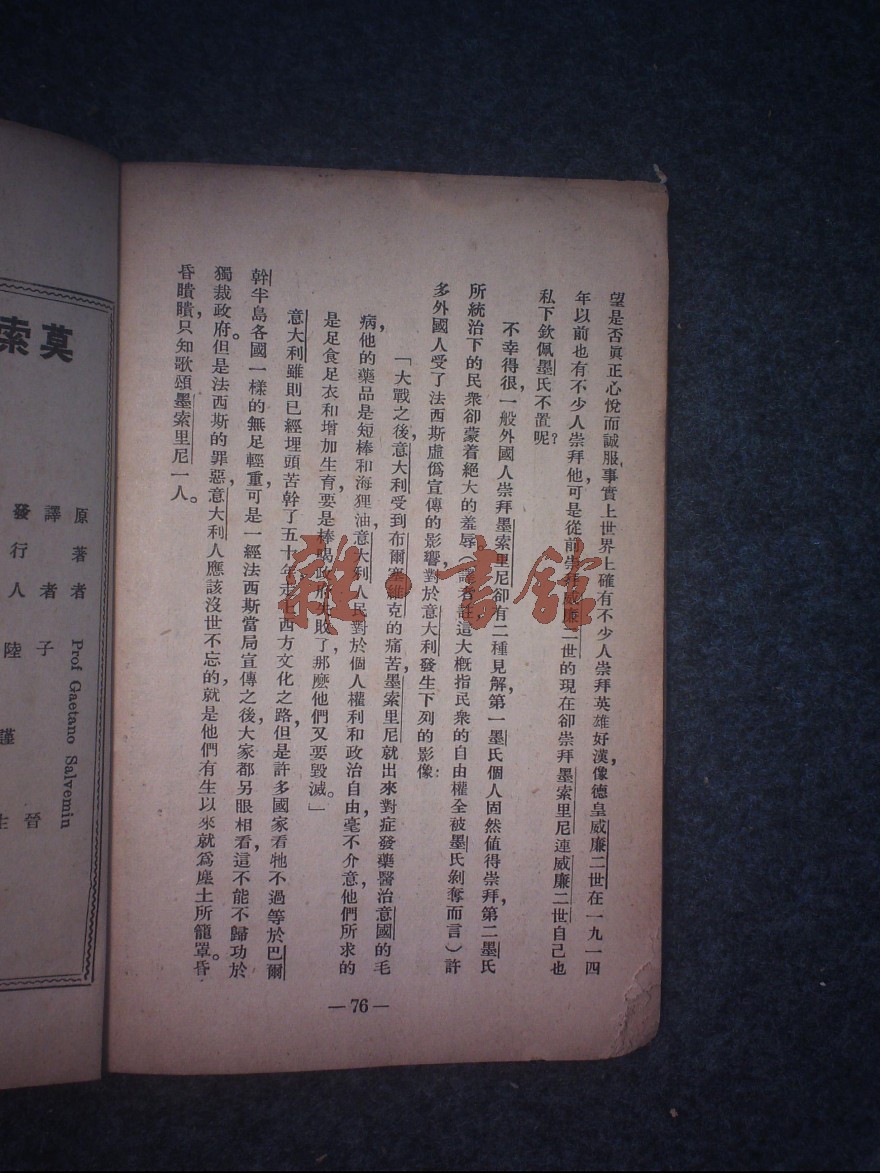 望是否眞正心悅而誠服,事實上世界上確有不少人崇拜英雄好漢,像德皇威廉二世在一九一四
年以前也有不少人崇拜他,可是從前崇拜威廉二世的現在卻崇拜墨索里尼連威廉二世自己也
私下欽佩墨氏不置呢?
不幸得很,一般外國人崇拜墨索里尼卻有二種見解,第一墨氏個人固然値得崇拜,第二墨氏
所統治下的民衆卻蒙着絕大的羞辱(譯者註這大槪指民衆的自由權全被墨氏剝奪而言)許
多外國人受了法西斯虛僞宣傳的影響,對於意大利發生下列的影像:
「大戰之後,意大利受到布爾塞維克的痛苦,墨索里尼就出來對症發藥,醫治意國的毛
病,他的藥品是短棒和海狸油,意大利人民對於個人權利和政治自由,毫不介意,他們所求的
是足食足衣和增加生育,要是棒喝政府失敗了,那麽他們又要毀滅。」
意大利雖則已經埋頭苦幹了五十年,走上西方文化之路,但是許多國家看牠不過等於巴爾
幹半島各國一樣的無足輕重,可是一經法西斯當局宣傳之後,大家都另眼相看,這不能不歸功於
獨裁政府。但是法西斯的罪惡,意大利人應該沒世不忘的,就是他們有生以來就爲塵土所籠罩。昏
昏瞶瞶,只知歌頌墨索里尼一人。
—76—
莫索
原著者 Prof Gaetano Salvemin
譯者 子陸
發行人 謹
晉生
雜·書館